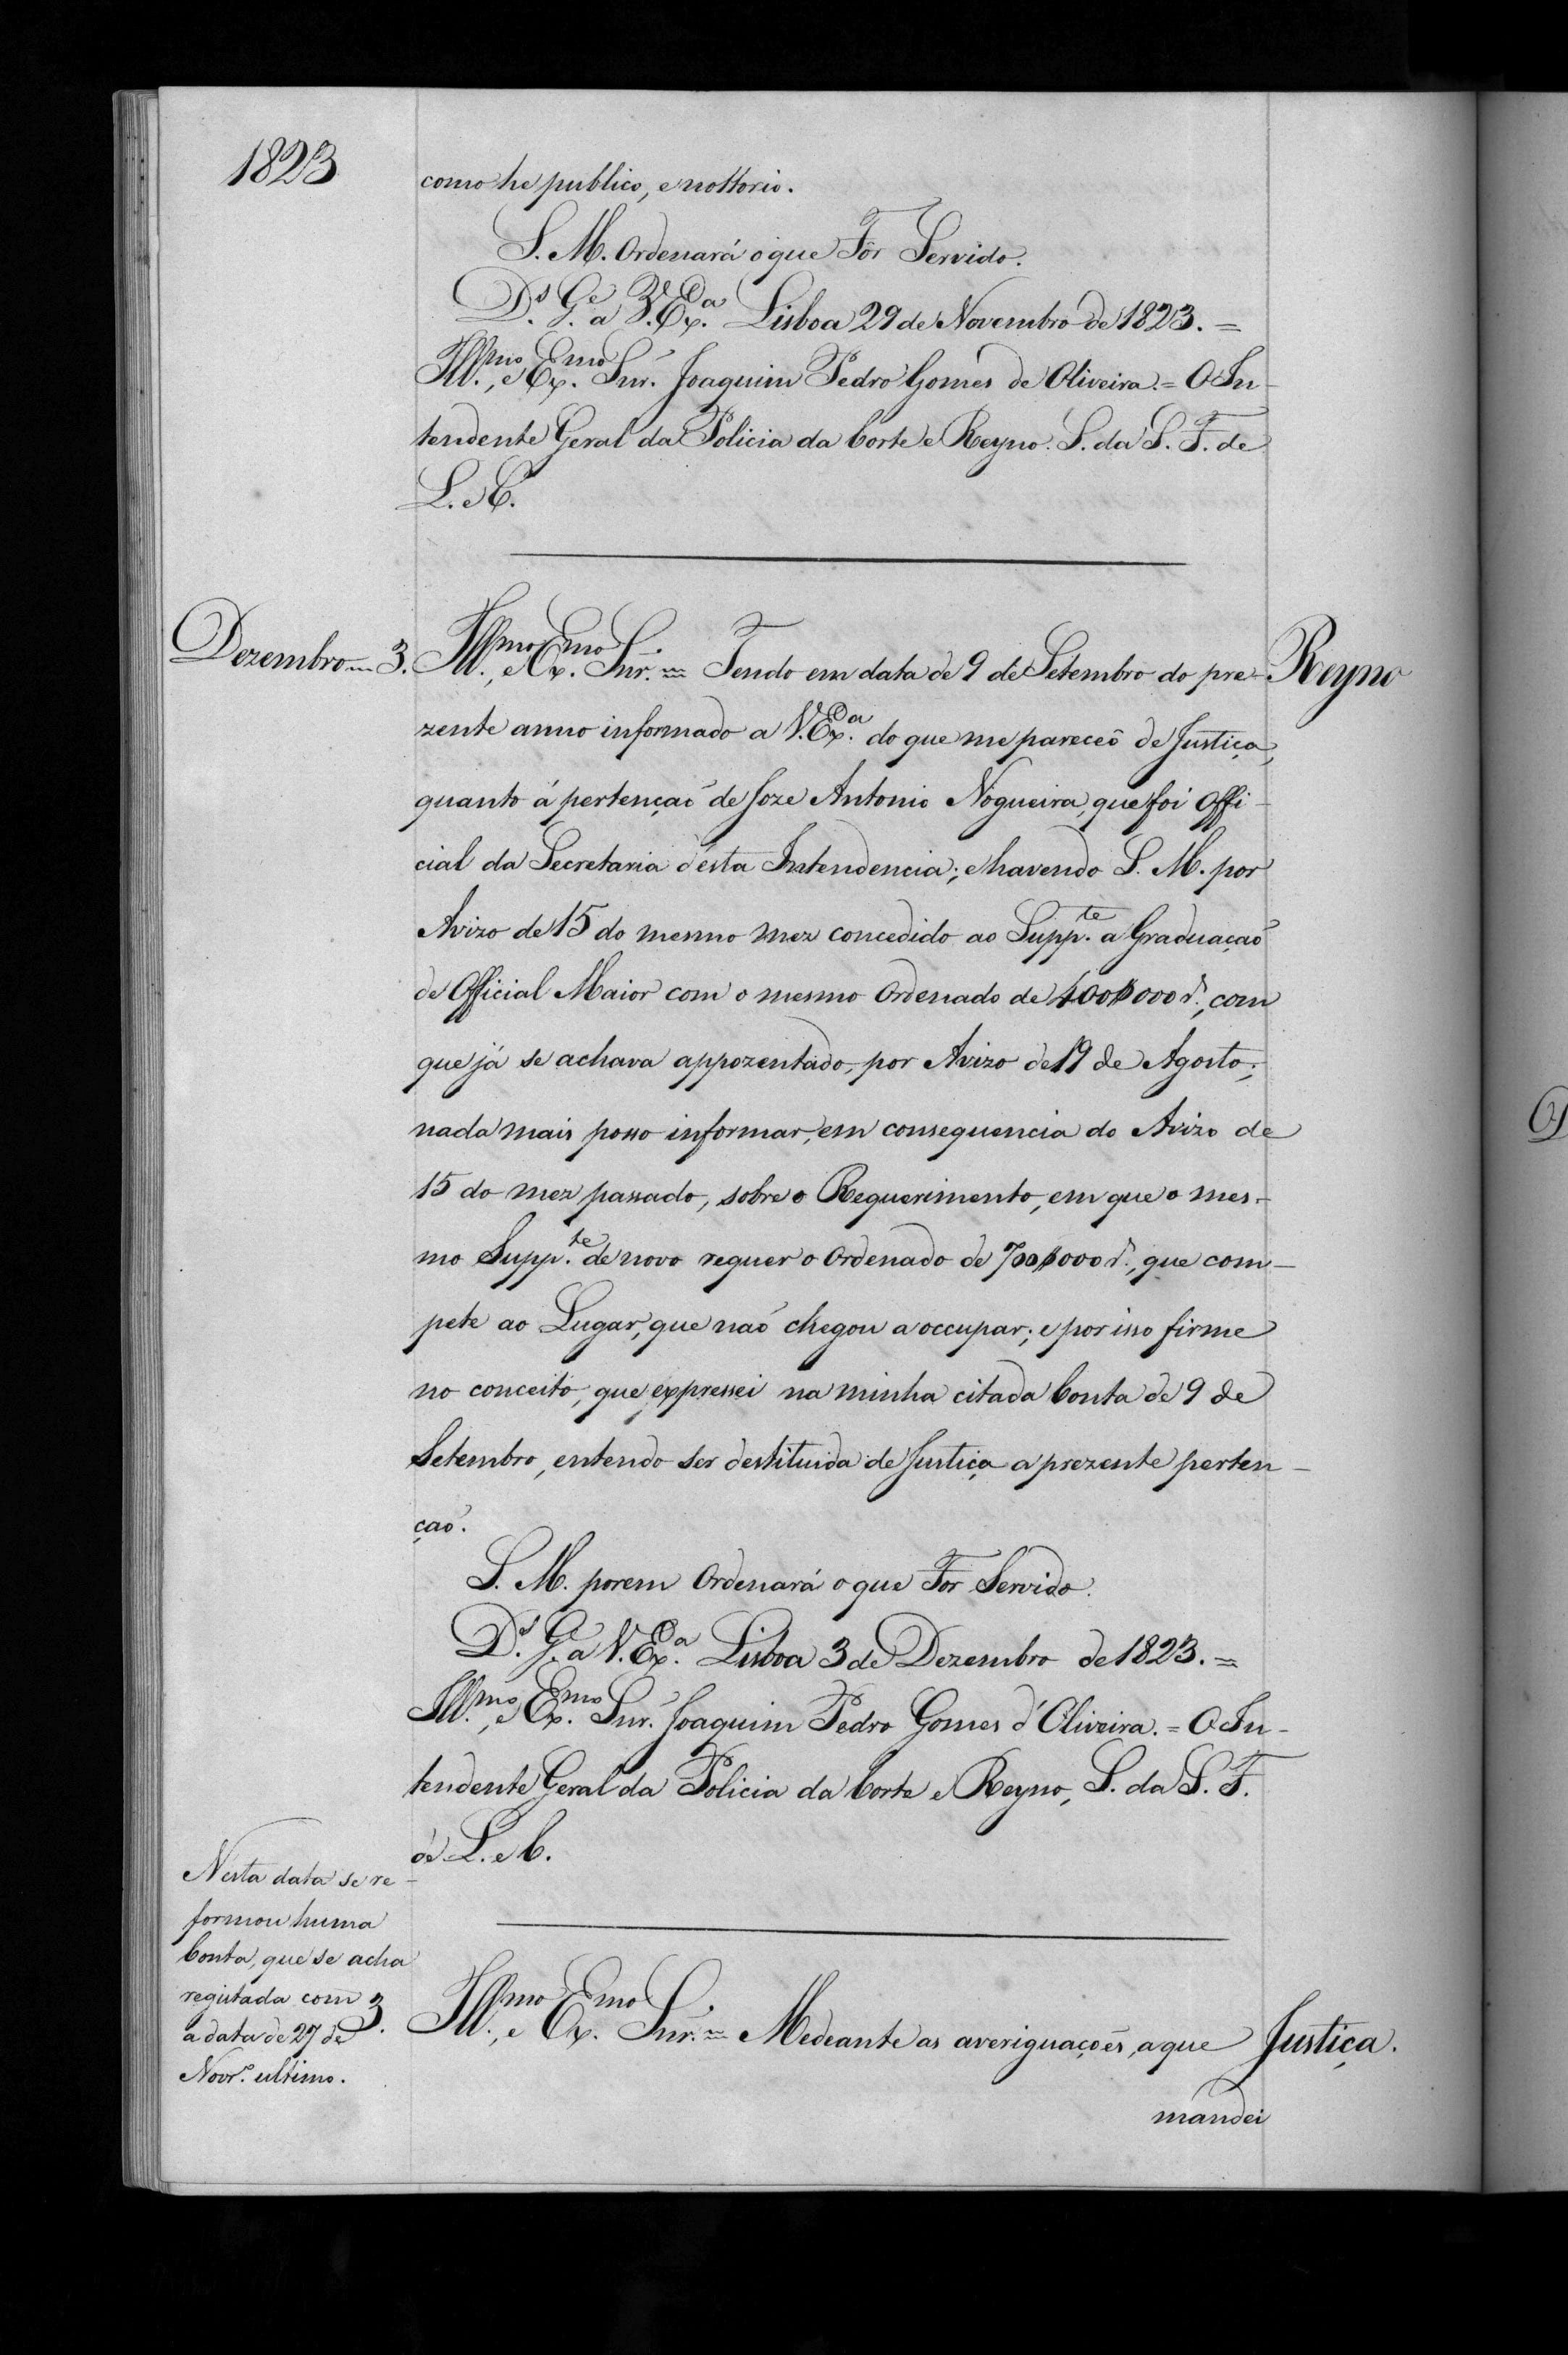 1823
como he publico, e nottorio.
S. M. Ordenará o que Fôr Servido.
D.s G.e a V. Ex.a Lisboa 29 de Novembro de 1823. =
Ill.mo, e Ex.mo Snr. Joaquim Pedro Gomes de Oliveira. = O In-
tendente Geral da Policia da Corte e Reyno. S. da S. F. de
L. e C.
Dezembro = 3. Ill.mo, e Ex.mo Snr. = Tendo em data de 9 de Setembro do pre- Reyno
zente anno informado a V. Ex.a do que me pareceô de Justiça,
quanto á pertençaõ de Joze Antonio Nogueira, que foi Offi-
cial da Secretaria d'esta Intendencia; e havendo S. M. por
Avizo de 15 do mesmo mez concedido ao Supp.te a Graduaçaõ
de Official Maior com o mesmo Ordenado de 400$000 r.s, com
que já se achava appozentado, por Avizo de 19 de Agosto;
nada mais posso informar, em consequencia do Avizo de
15 do mez passado, sobre o Requerimento, em que o mes-
mo Supp.te de novo requer o Ordenado de 700$000 r.s, que com-
pete ao Lugar, que naõ chegou a occupar; e por isso firme
no conceito, que expressei na minha citada Conta de 9 de
Setembro, entendo ser destituida de Justiça a prezente perten-
çaõ.
S. M. porem Ordenará o que For Servido.
D.s G.e a V. Ex.a Lisboa 3 de Dezembro de 1823. =
Ill.mo, e Ex.mo Snr. Joaquim Pedro Gomes d'Oliveira. = O In-
tendente Geral da Policia da Corte e Reyno, S. da S. F.
de L. e C.
Nesta data se re-
formou huma
Conta, que se acha
registada com
a data de 27 de
Novr.o ultimo.
3. Ill.mo, e Ex.mo Snr. = Mediante as averiguaçoẽs, a que Justiça.
mandei